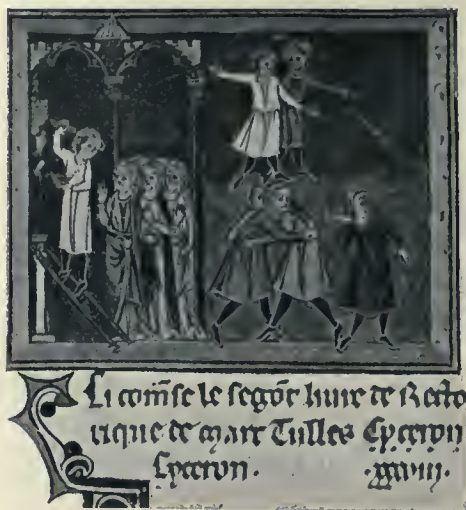 Ci comẽse le segõt liure de Recto
rique de marc Tulles Cyceron
Cyceron .